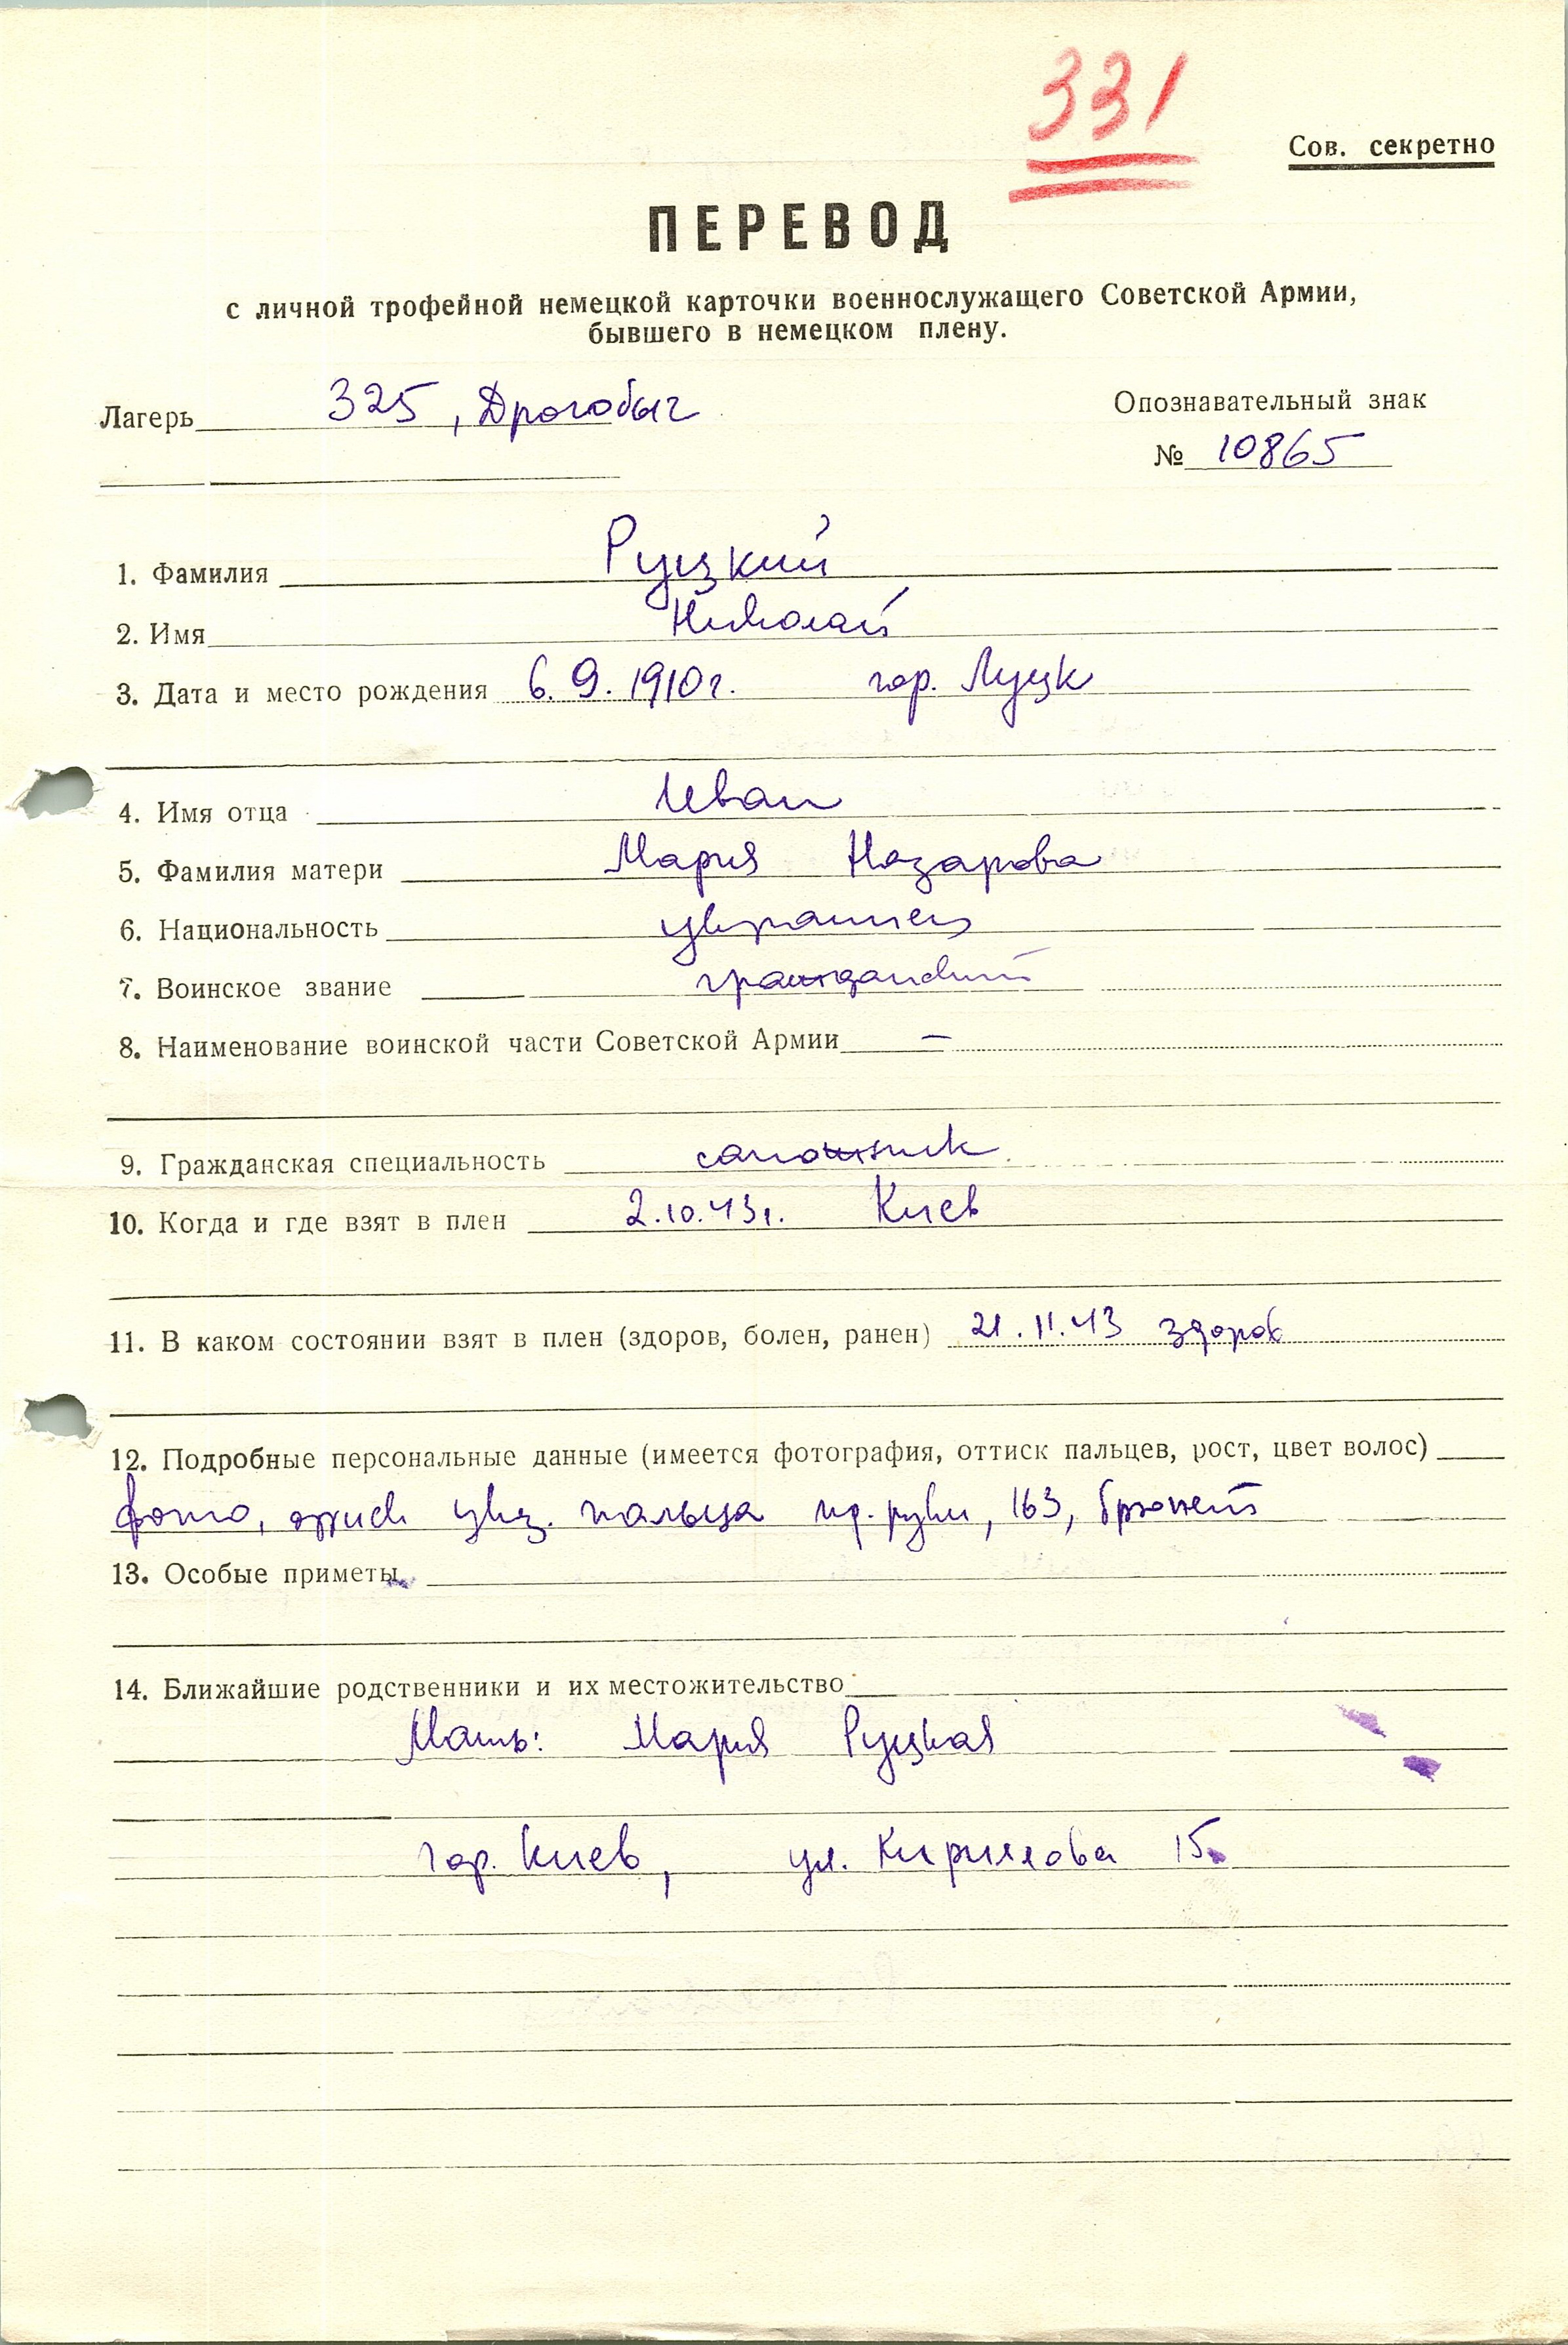 331
Сов. секретно
ПЕРЕВОД
с личной трофейной немецкой карточки военнослужащего Советской Армии,
бывшего в немецком плену.
Лагерь 325, Дрогобыч
Опознавательный знак
№ 10865
1. Фамилия Руцкий
2. Имя Николай
3. Дата и место рождения 6.9.1910г. гор. Луцк
4. Имя отца Иван
5. Фамилия матери Мария Назарова
6. Национальность украинец
7. Воинское звание гражданский
8. Наименование воинской части Советской Армии —
9. Гражданская специальность сапожник
10. Когда и где взят в плен 2.10.43г. Киев
11. В каком состоянии взят в плен (здоров, болен, ранен) 21.11.43 здоров
12. Подробные персональные данные (имеется фотография, оттиск пальцев, рост, цвет волос)
фото, оттиск указ. пальца пр. руки, 163, брюнет
13. Особые приметы
14. Ближайшие родственники и их местожительство
Мать: Мария Руцкая
гор. Киев, ул. Кириллова 15